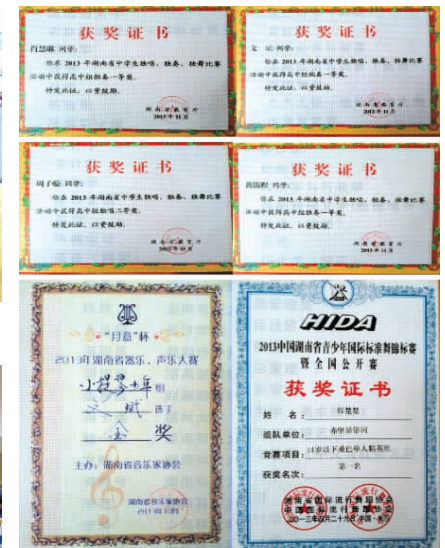 获奖证书
肖慧琳 同学:
你在 2013 年湖南省中学生独唱、独奏、独舞比赛
活动中获得高中组独奏一等奖。
特发此证，以资鼓励。
湖南省教育厅
2013年11月
获奖证书
文 斌 同学:
你在 2013 年湖南省中学生独唱、独奏、独舞比赛
活动中获得高中组独奏一等奖。
特发此证，以资鼓励。
湖南省教育厅
2013年11月
获奖证书
同学:
你在 2013 年湖南省中学生独唱、独奏、独舞比赛
活动中获得高中组独唱二等奖。
特发此证，以资鼓励。
湖南省教育厅
获奖证书
同学:
你在 2013 年湖南省中学生独唱、独奏、独舞比赛
活动中获得高中组独奏一等奖。
特发此证，以资鼓励。
湖南省教育厅
2013年11月
“月意”杯
2013年湖南省器乐、声乐大赛
小提琴 组
文斌 选手
金 奖
主办: 湖南省音乐家协会
湖南省音乐家协会
HIDA
2013中国湖南省青少年国际标准舞锦标赛
暨全国公开赛
获奖证书
姓 名:
组队单位:
竞赛项目: 14岁以下桑巴单人精英组
获奖名次: 第一名
湖南省国际流行舞蹈协会
中国国际流行舞蹈协会